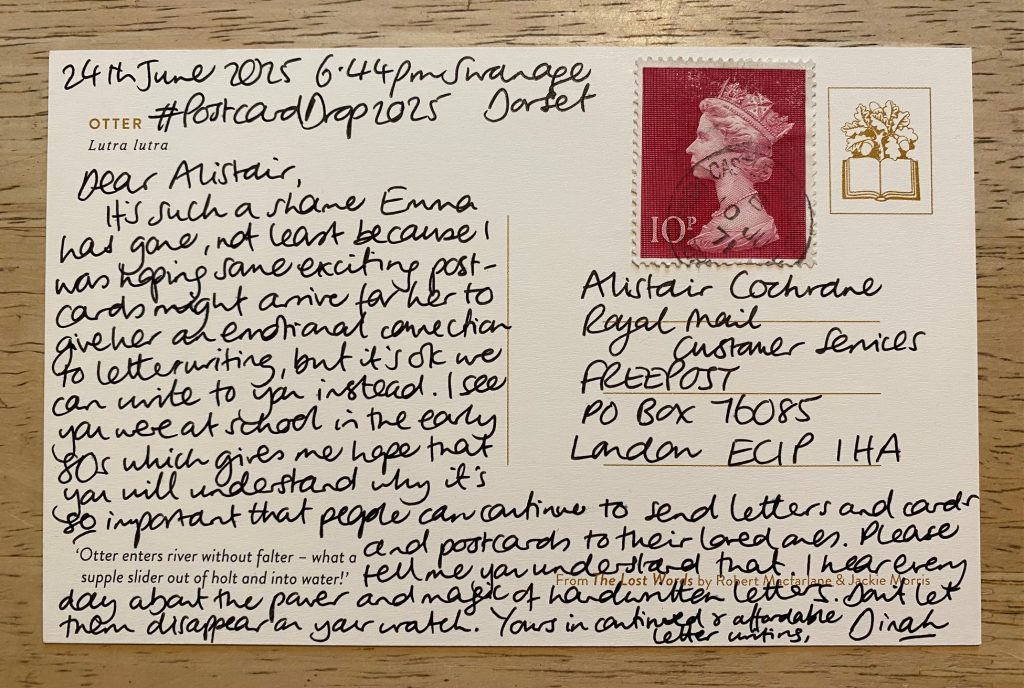 24th June 2025 6.44pm Swanage
#PostcardDrop2025 Dorset
OTTER
Lutra lutra
Dear Alistair,
It's such a shame Emma
has gone, not least because I
was hoping some exciting post-
cards might arrive for her to
give her an emotional connection
to letterwriting, but it's ok we
can write to you instead. I see
you were at school in the early
80s which gives me hope that
you will understand why it's
so important that people can continue to send letters and cards
and postcards to their loved ones. Please
tell me you understand that. I hear every
day about the power and magic of handwritten letters. Don't let
them disappear on your watch. Yours in continued & affordable
letter writing, Dinah
'Otter enters river without falter – what a
supple slider out of holt and into water!'
From The Lost Words by Robert Macfarlane & Jackie Morris
10P
Alistair Cochrane
Royal Mail
Customer Services
FREEPOST
PO Box 76085
London EC1P 1HA